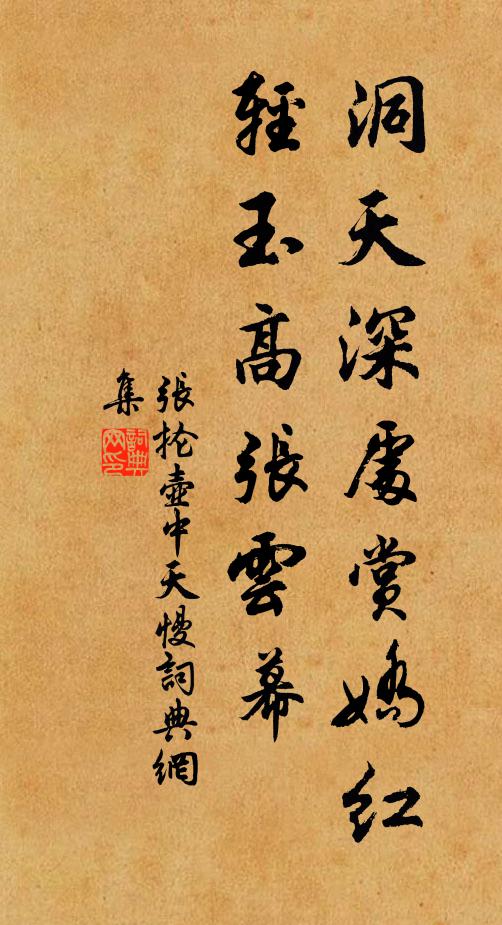 洞天深處賞嬌紅
輕玉高張雲幕
張掄壺中天慢詞典網
集
詞典
网印